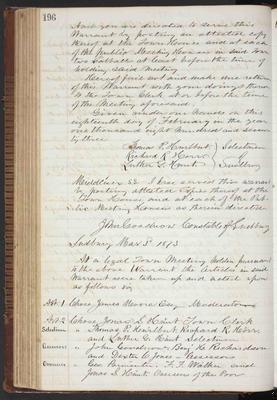 196
And you are directed to serve this
Warrant by posting an attested copy
thereof at the Town House and at each
of the public Meeting Houses in said Town
two Sabbaths at least before the time of
holding said Meeting
Hereof fail not and make due return
of this Warrant with your doings thereon
to the Town Clerk at or before the time
of the Meeting aforesaid.
Given under our hands this
eighteenth day of February in the year
one thousand eight hundred and seventy
three
Thomas P. Hurlbut } Selectmen
Richard R. Horr } of
Luther G. Hunt } Sudbury
Middlesex SS. I have served this warrant
by posting attested copies thereof at the
Town House and at each of the Pub-
lic Meeting Houses as herein directed
John Goodnow Constable of Sudbury
Sudbury Mar 3d 1873
At a legal Town Meeting holden pursuant
to the above Warrant the Articles in said
Warrant were taken up and acted upon
as follows viz
Art. 1 Chose James Moore Esq. Moderator
Art. 2 Chose Jonas S. Hunt Town Clerk
Selectmen " Thomas P. Hurlbut, Richard R. Horr
and Luther G. Hunt Selectmen
Assessors " John Goodnow, Benj. H. Richardson
and Dexter C. Jones Assessors
Overseers " Geo. Parmenter, F. F. Walker and
Jonas S. Hunt Overseers of the Poor